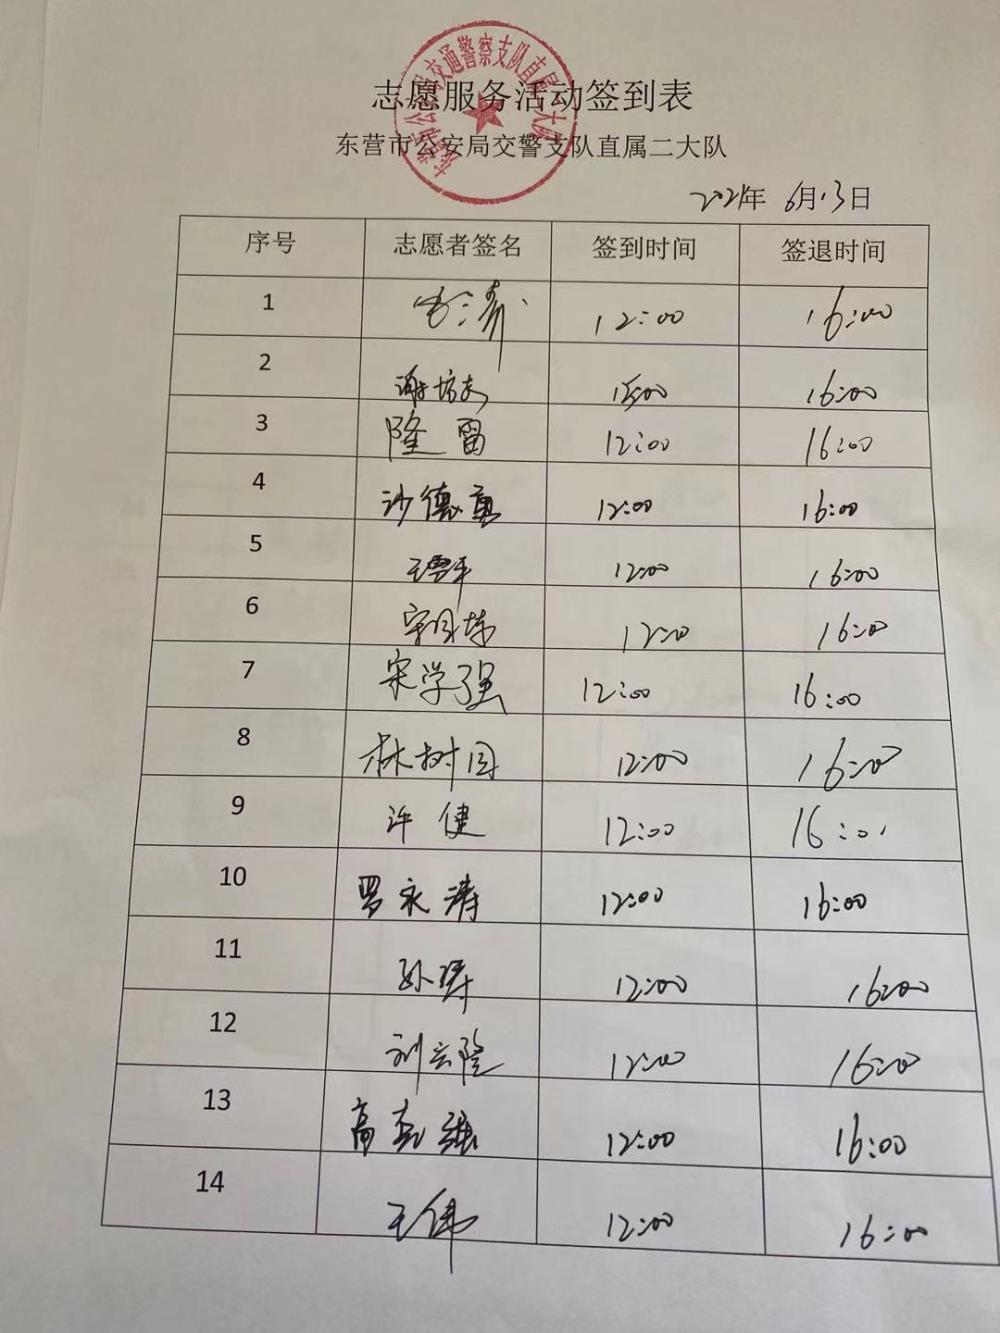 东营市公安局交通警察支队直属二大队
志愿服务活动签到表
东营市公安局交警支队直属二大队
2024年 6月13日
序号 志愿者签名 签到时间 签退时间
1 12:00 16:00
2 16:00
3 隆雷 12:00 16:00
4 沙德勇 12:00 16:00
5 12:00 16:00
6 12:00 16:00
7 宋学强 12:00 16:00
8 林树国 12:00 16:00
9 许健 12:00 16:00
10 罗永涛 12:00 16:00
11 孙涛 12:00 16:00
12 刘云隆 12:00 16:00
13 高克强 12:00 16:00
14 王伟 12:00 16:00